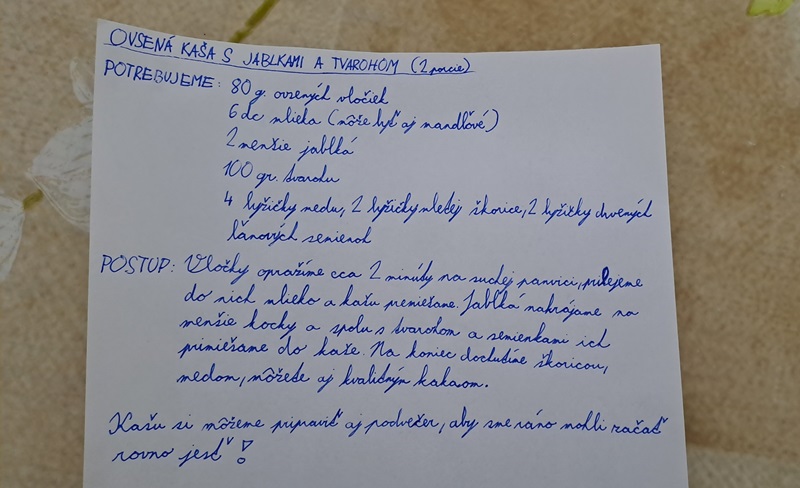 OVSENÁ KAŠA S JABLKAMI A TVAROHOM (2 porcie)
POTREBUJEME: 80 g. ovsených vločiek
6 dc mlieka (môže byť aj mandľové)
2 menšie jablká
100 gr. tvarohu
4 lyžičky medu, 2 lyžičky mletej škorice, 2 lyžičky drvených
ľanových semienok
POSTUP: Vločky opražíme cca 2 minúty na suchej panvici, prilejeme
do nich mlieko a kašu premiešame. Jablká nakrájame na
menšie kocky a spolu s tvarohom a semienkami ich
primiešame do kaše. Na koniec dochutíme škoricou,
medom, môžete aj kvalitným kakaom.
Kašu si môžeme pripraviť aj podvečer, aby sme ráno mohli začať
rovno jesť!